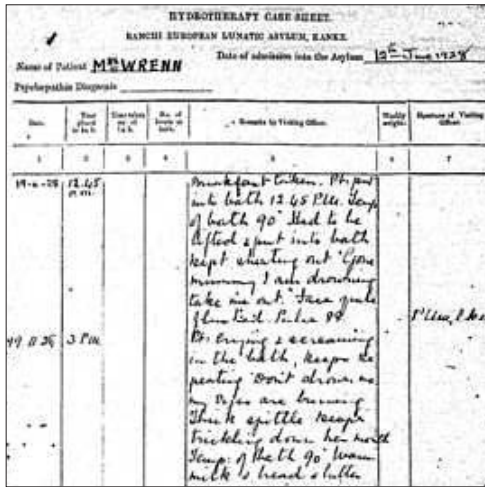 HYDROTHERAPY CASE SHEET.
RANCHI EUROPEAN LUNATIC ASYLUM, KANKE.
Date of admission into the Asylum 12th June 1928
Name of Patient Mrs WRENN
Psychopathic Diagnosis
Date. Time placed in bath. Time taken out of bath. No. of hours in bath. Remarks by Visiting Officer. Weekly weight. Signature of Visiting Officer.
1 2 3 4 5 6 7
19-6-28 12.45 P.M. Breakfast taken. Pt. put
into bath 12.45 P.M. Temp
of bath 90° Had to be
lifted & put into bath
kept shouting out "
mummy I am drowning
take me out." Face quite
flushed. Pulse 88
3 PM Pt. crying & screaming
in the bath, keeps re
peating "Don't drown me
my eyes are burning
Thick spittle keeps
trickling down her mouth
Temp: of bath 90° Warm
milk & bread & butter